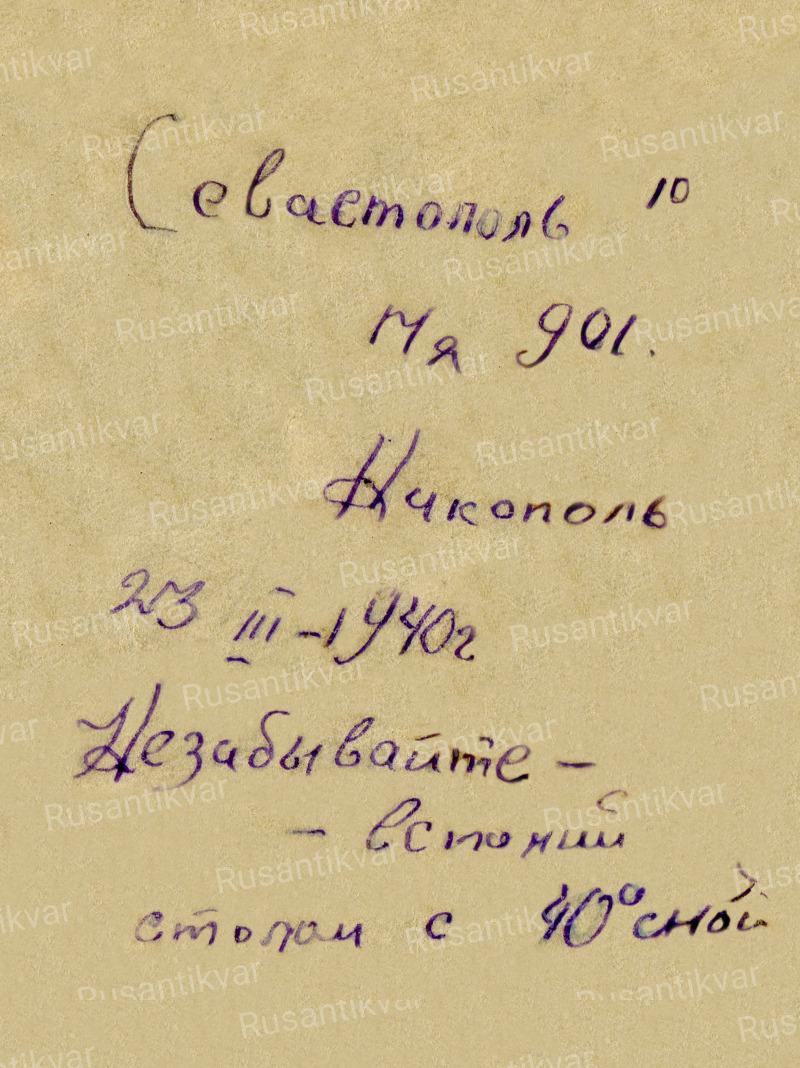 Севастополь 10
Мя 901.
Никополь
23 III-1940г
Незабывайте -
- вспомий
столом с 40°сной